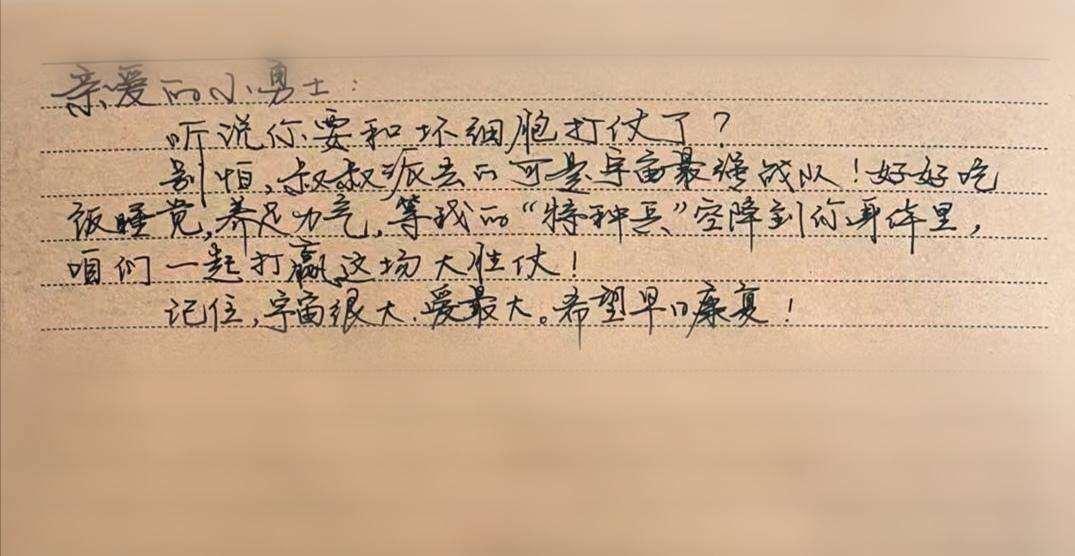 亲爱的小勇士：
听说你要和坏细胞打仗了？
别怕，叔叔派去的可是宇宙最强战队！好好吃
饭睡觉，养足力气，等我的“特种兵”空降到你身体里，
咱们一起打赢这场大胜仗！
记住，宇宙很大，爱最大。希望早日康复！